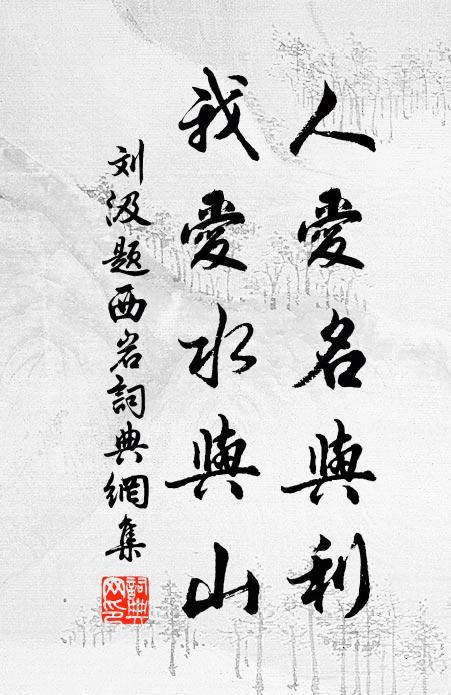 人愛名與利
我愛水與山
刘汲题西岩詞典網集
詞典網印